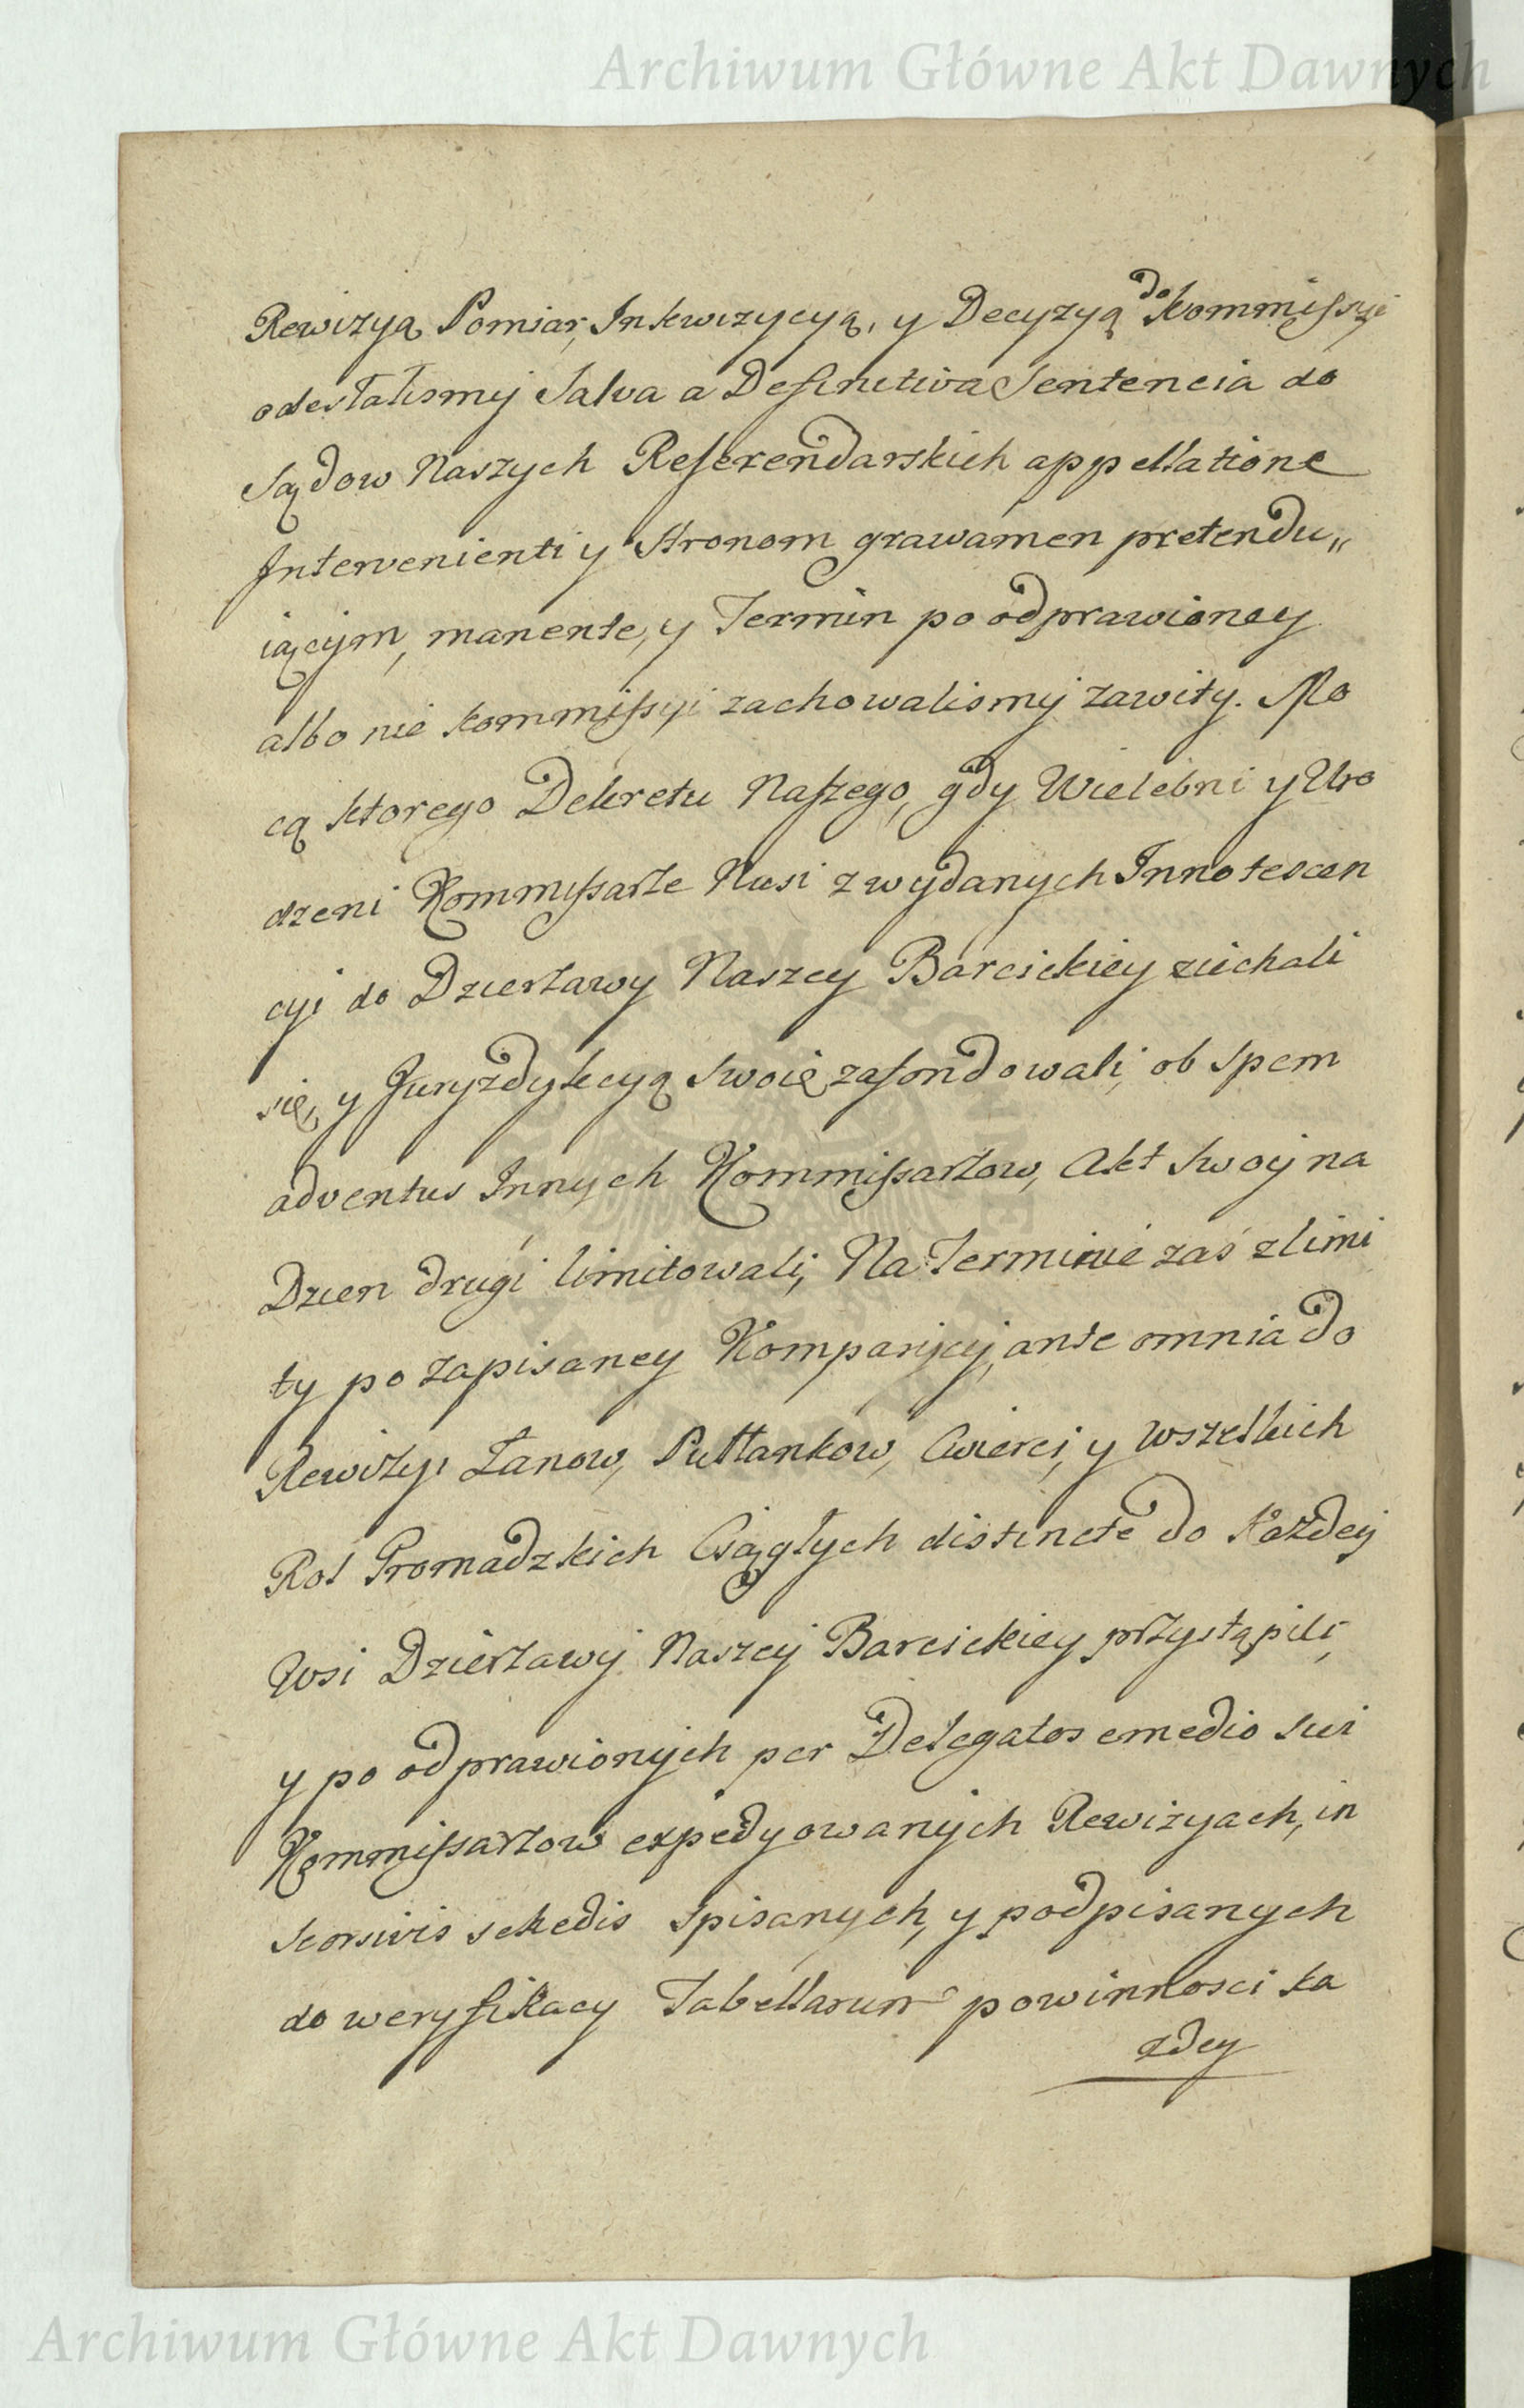 Archiwum Główne Akt Dawnych
Rewizyą Pomiar, Inkwizycyą, y Decyzyą do Kommissyi
odesłalismy Salva a Definitiva Sentencia do
Sądow Naszych Referendarskich appellatione
Intervenienti y Stronom grawamen pretendu„
iącym, manente, y Termin po odprawioney
albo nie kommissyi zachowalismy zawity. Mo
cą ktorego Dekretu Naszego, gdy Wielebni y Uro
dzeni Kommissarze Nasi z wydanych Innotescen
cyi do Dzierżawy Naszey Barcickiey ziechali
się, y Juryzdykcyą swoię zafondowali, ob spem
adventus Innych Kommissarzow, Akt swoy na
Dzien drugi limitowali, Na Terminie zaś z limi
ty po zapisaney Komparycyi, ante omnia do
Rewizyi Łanow, Pułłankow, Cwierci, y wszelkich
Rol Gromadzkich Ciągłych distincte do Każdey
Wsi Dzierżawy Naszey Barcickiey przystąpili,
y po odprawionych per Delegatos e medio sui
Kommissarzow expedyowanych Rewizyach, in
scorsivis schedis spisanych, y podpisanych
do weryfikacy Tabellarum powinnosci ka
zdey
Archiwum Główne Akt Dawnych